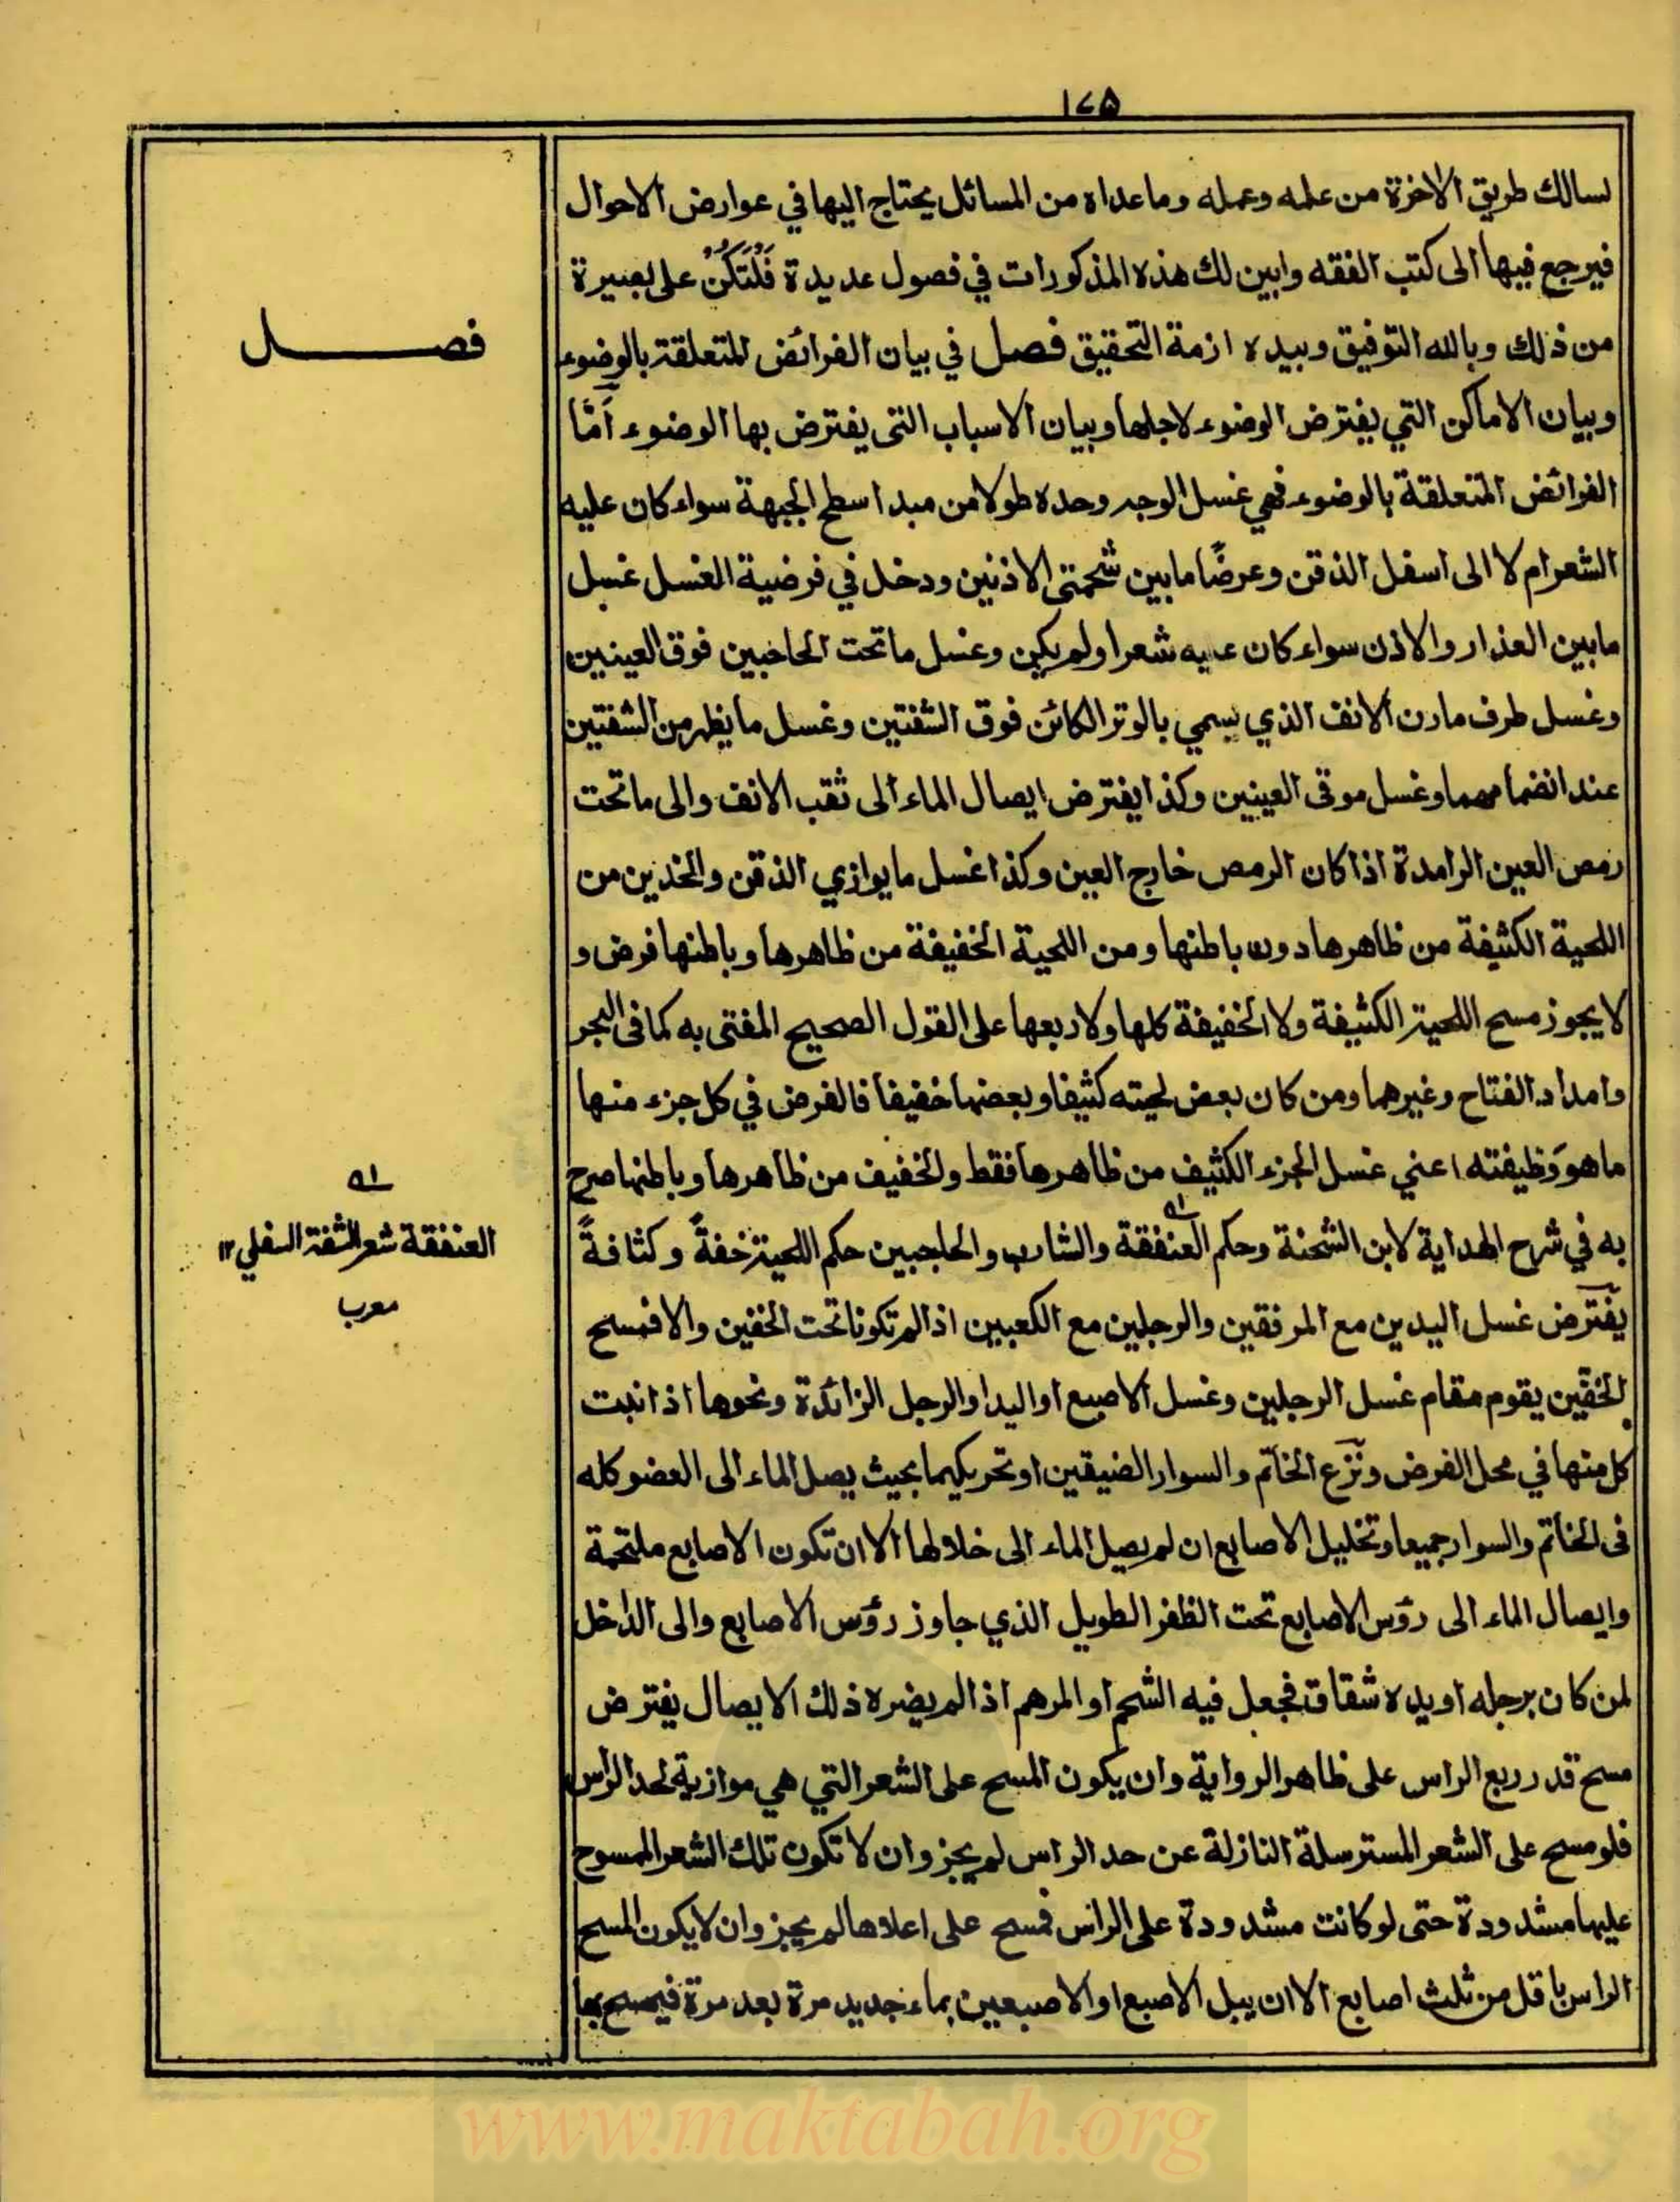 ١٧٥
لسالك طريق الاخرة من علمه وعمله وما عداه من المسائل يحتاج اليها في عوارض الاحوال
فيرجع فيها الى كتب الفقه وابين لك هذه المذكورات في فصول عديدة فَلْتَكُنْ على بصيرة
من ذلك وبالله التوفيق وبيده ازمة التحقيق فصل في بيان الفرائض المتعلقة بالوضوء
وبيان الاماكن التي يفترض الوضوء لاجلها وبيان الاسباب التي يفترض بها الوضوء امّا
الفرائض المتعلقة بالوضوء فهي غسل الوجه وحده طولا من مبدا سطح الجبهة سواء كان عليه
الشعر ام لا الى اسفل الذقن وعرضًا ما بين شحمتى الاذنين ودخل في فرضية الغسل غسل
ما بين العذار والاذن سواء كان عليه شعر اولم يكن وغسل ما تحت الحاجبين فوق العينين
وغسل طرف مارن الانف الذي يسمي بالوتر الكائن فوق الشفتين وغسل ما يظهر من الشفتين
عند انضمامهما وغسل موقى العينين وكذا يفترض ايصال الماء الى ثقب الانف والى ما تحت
رمص العين الرامدة اذا كان الرمص خارج العين وكذا غسل ما يوازي الذقن والخدين من
اللحية الكثيفة من ظاهرها دون باطنها ومن اللحية الخفيفة من ظاهرها وباطنها فرض و
لا يجوز مسح اللحية الكثيفة ولا الخفيفة كلها ولا ربعها على القول الصحيح المفتى به كما فى البحر
وامداد الفتاح وغيرهما ومن كان بعض لحيته كثيفا وبعضها خفيفا فالفرض في كل جزء منها
ما هو وَظيفته اعني غسل الجزء الكثيف من ظاهرها فقط والخفيف من ظاهرها وباطنها صرح
به في شرح الهداية لابن الشحنة وحكم العنفقة والشارب والحاجبين حكم اللحية خفةً وكثافةً
يفترض غسل اليدين مع المرفقين والرجلين مع الكعبين اذا لم تكونا تحت الخفين والا فمسح
الخفين يقوم مقام غسل الرجلين وغسل الاصبع او اليد او الرجل الزائدة ونحوها اذا نبت
كل منها في محل الفرض ونزع الخاتم والسوار الضيقين او تحريكهما بحيث يصل الماء الى العضو كله
فى الخاتم والسوار جميعا وتخليل الاصابع ان لم يصل الماء الى خلالها الا ان تكون الاصابع ملتحمة
وايصال الماء الى رؤس الاصابع تحت الظفر الطويل الذي جاوز رؤس الاصابع والى الداخل
لمن كان برجله او يده شقاق فجعل فيه الشحم او المرهم اذا لم يضره ذلك الايصال يفترض
مسح قدر ربع الراس على ظاهر الرواية وان يكون المسح على الشعر التي هي موازية لحد الراس
فلو مسح على الشعر المسترسلة النازلة عن حد الراس لم يجز وان لا تكون تلك الشعر الممسوح
عليها مشدودة حتى لو كانت مشدودة على الراس فمسح على اعلاها لم يجز وان لا يكون المسح
الراس باقل من ثلث اصابع الا ان يبل الاصبع او الاصبعين بماء جديد مرة بعد مرة فيمسح بها
فصل
العنفقة شعر الشفة السفلي ١٢
معرب
www.maktabah.org